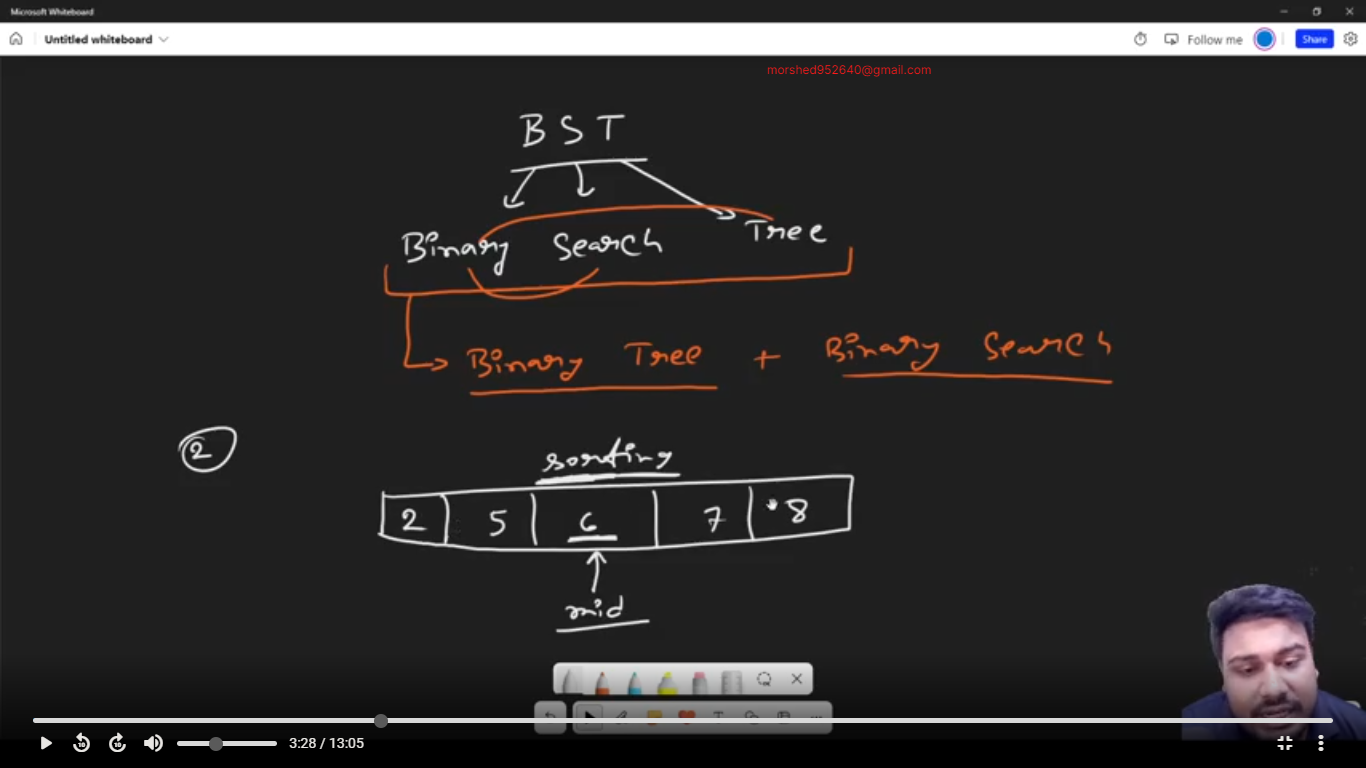 Microsoft Whiteboard
Untitled whiteboard
Follow me
Share
morshed952640@gmail.com
B S T
Binary Search Tree
Binary Tree + Binary Search
2
sorting
2 5 6 7 8
mid
10 10 3:28 / 13:05